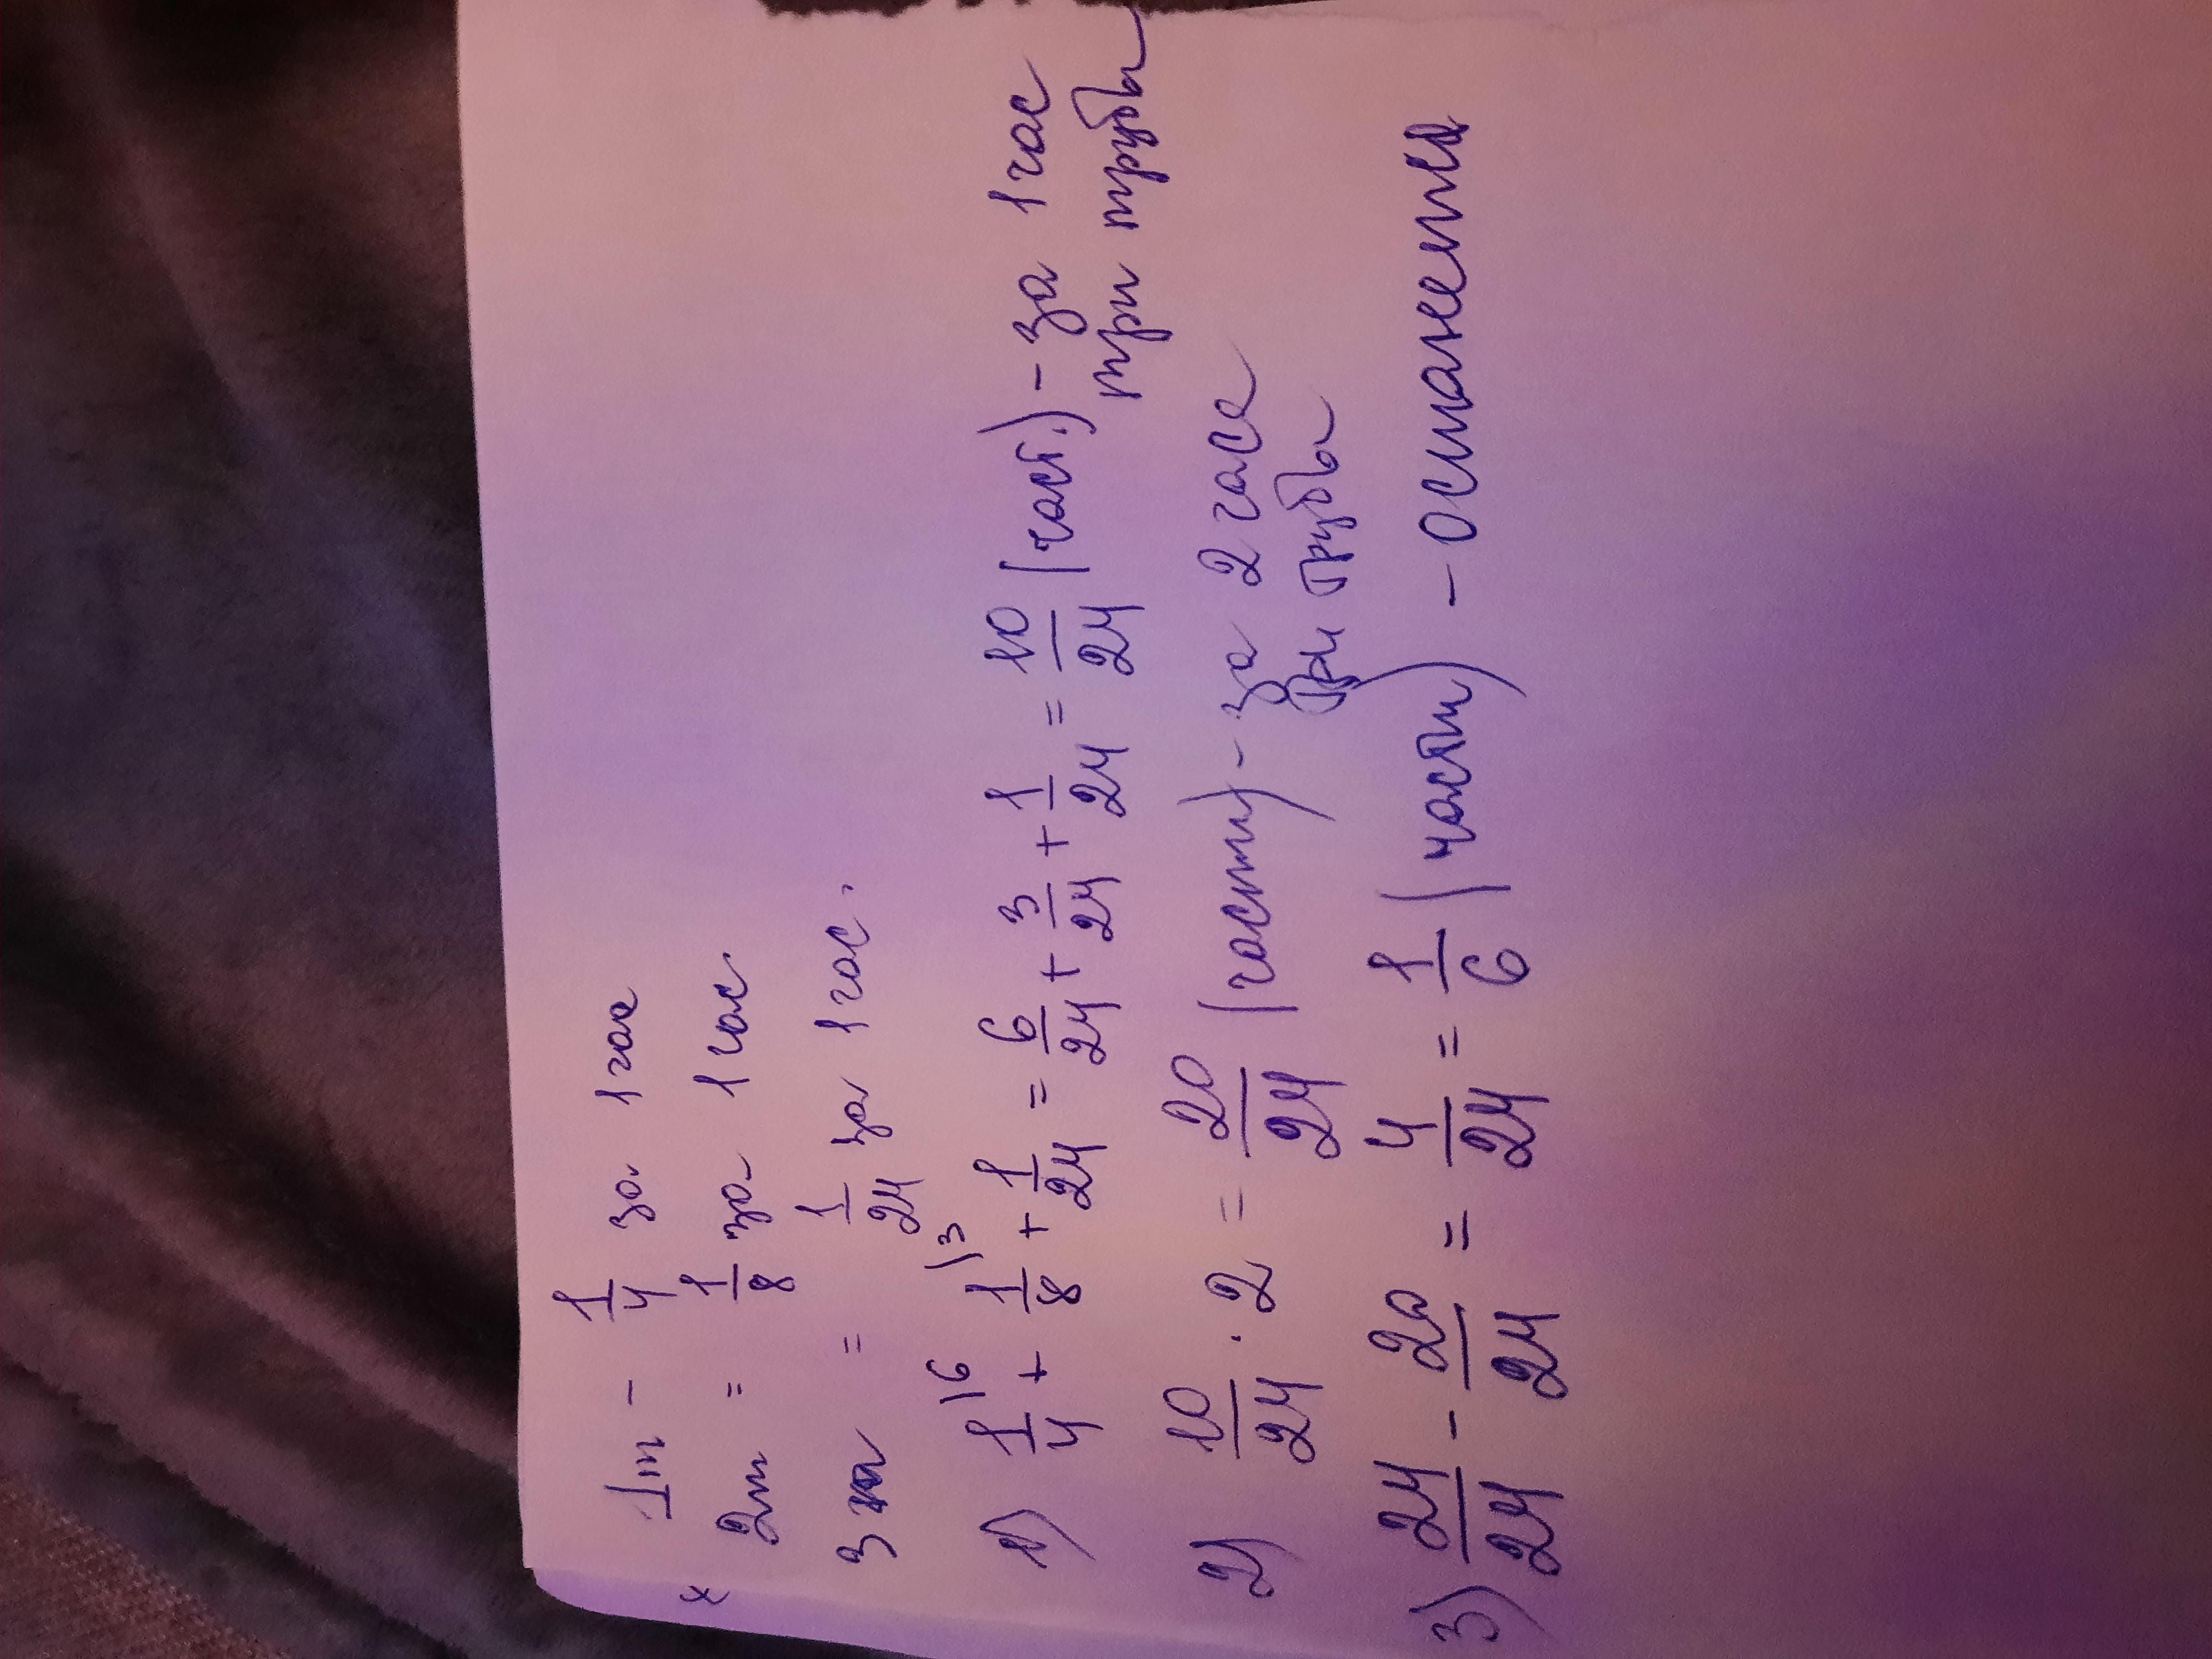 1т - 1/4 за 1 час
2т = 1/8 за 1 час
3 = 1/24 за 1 час.
1) 1/4 \6 + 1/8 \3 + 1/24 = 6/24 + 3/24 + 1/24 = 10/24 (част.) - за 1 час
три трубы
2) 10/24 · 2 = 20/24 (части) - за 2 часа
три трубы
3) 24/24 - 20/24 = 4/24 = 1/6 (части) - останется